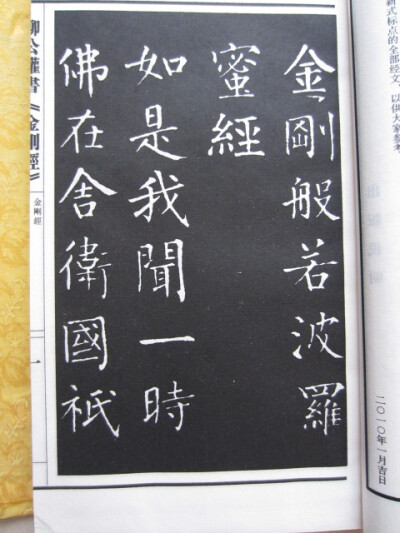 新式标点的全部经文，以供大家参考
二〇一〇年一月吉日
金剛般若波羅
蜜經
如是我聞一時
佛在舍衛國祇
柳公權書《金剛經》
金剛經
一